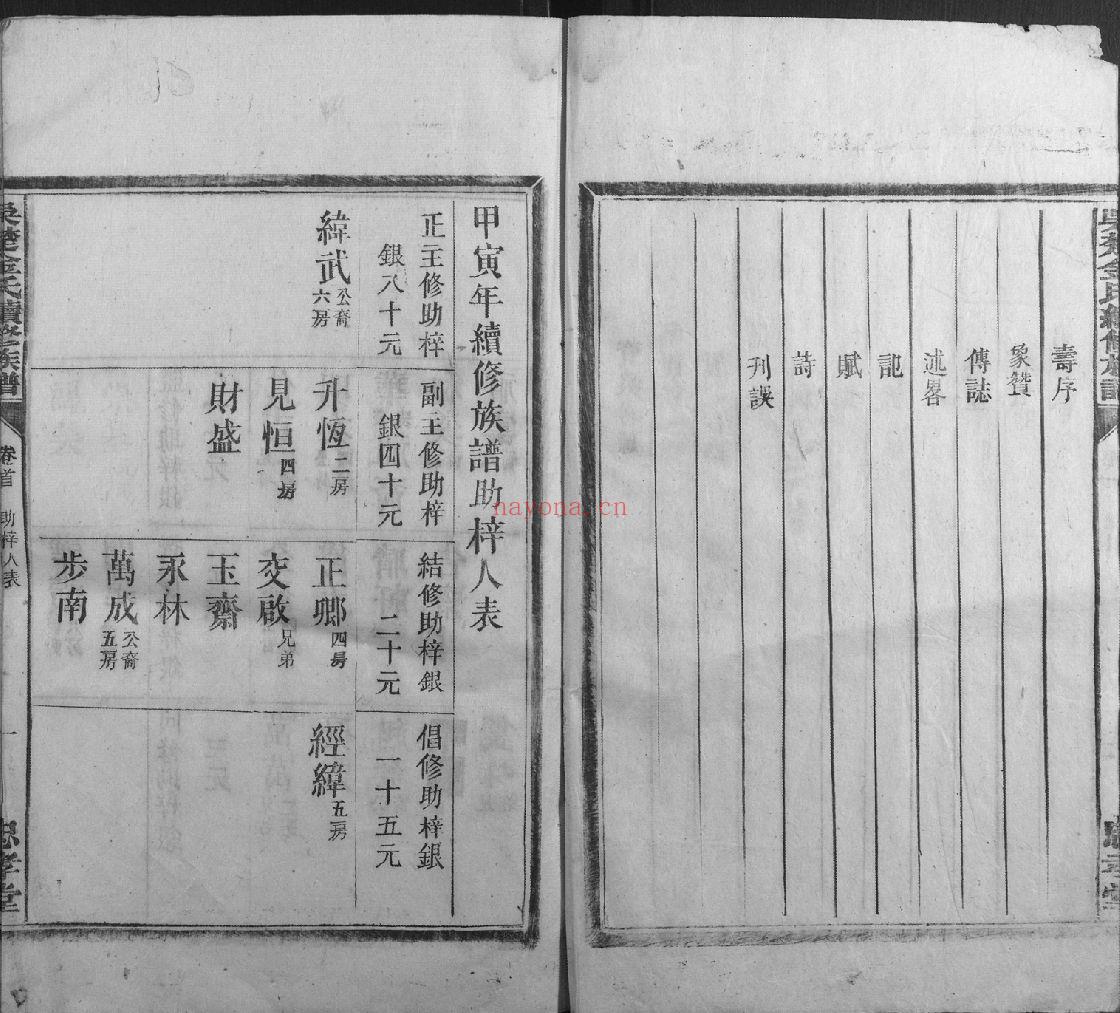 壽序
象贊
傳誌
述畧
記
賦
詩
刊誤
甲寅年續修族譜助梓人表
正主修助梓
銀八十元
緯武公裔六房
副主修助梓
銀四十元
升恆二房
見恒四房
財盛
結修助梓銀
二十元
正卿四房
交啟兄弟
玉齋
永林
萬成公裔五房
步南
倡修助梓銀
一十五元
經緯五房
吳楚金氏續修族譜
卷首
助梓人表
一
忠孝堂
nayona.cn